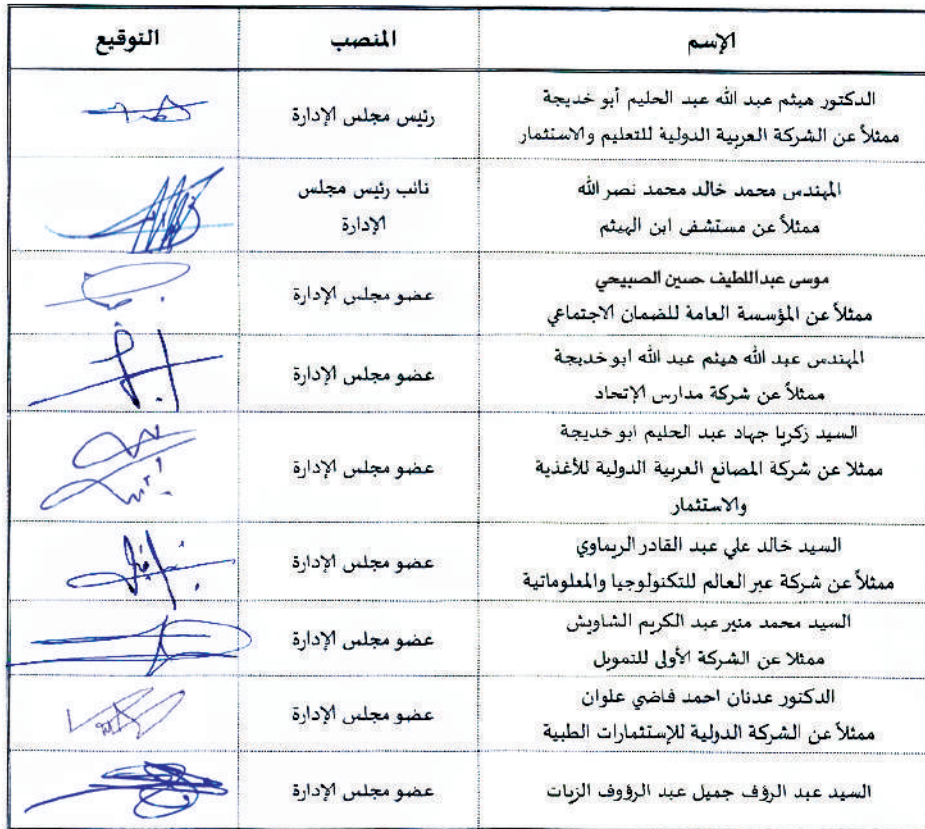 الإسم المنصب التوقيع
الدكتور هيثم عبد الله عبد الحليم أبو خديجة
ممثلاً عن الشركة العربية الدولية للتعليم والاستثمار
رئيس مجلس الإدارة
المهندس محمد خالد محمد نصر الله
ممثلاً عن مستشفى ابن الهيثم
نائب رئيس مجلس
الإدارة
موسى عبداللطيف حسين الصبيحي
ممثلاً عن المؤسسة العامة للضمان الاجتماعي
عضو مجلس الإدارة
المهندس عبد الله هيثم عبد الله ابو خديجة
ممثلاً عن شركة مدارس الإتحاد
عضو مجلس الإدارة
السيد زكريا جهاد عبد الحليم ابو خديجة
ممثلا عن شركة المصانع العربية الدولية للأغذية
والاستثمار
عضو مجلس الإدارة
السيد خالد علي عبد القادر الريماوي
ممثلاً عن شركة عبر العالم للتكنولوجيا والمعلوماتية
عضو مجلس الإدارة
السيد محمد منير عبد الكريم الشاويش
ممثلا عن الشركة الأولى للتمويل
عضو مجلس الإدارة
الدكتور عدنان احمد فاضي علوان
ممثلاً عن الشركة الدولية للإستثمارات الطبية
عضو مجلس الإدارة
السيد عبد الرؤف جميل عبد الرؤوف الزيات
عضو مجلس الإدارة